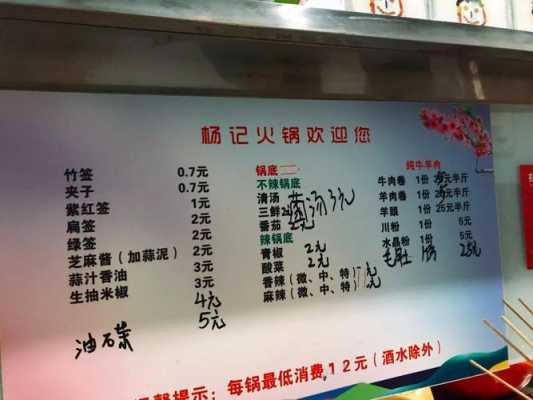 杨记火锅欢迎您
竹签 0.7元
夹子 0.7元
紫红签 1元
扁签 2元
绿签 2元
芝麻酱（加蒜泥） 2元
蒜汁香油 3元
生抽米椒 3元
4元
油石菜 5元
锅底
不辣锅底
清汤
三鲜
番茄
菌汤3元
辣锅底
青椒 2元
酸菜 2元
香辣（微、中、特） 元
麻辣（微、中、特） 元
纯牛羊肉
牛肉卷 1份 元半斤
羊肉卷 1份 元半斤
羊眼 1份 25元半斤
川粉 1份 6元
水晶粉 1份 5元
毛肚 1份 25元
提示：每锅最低消费12元（酒水除外）